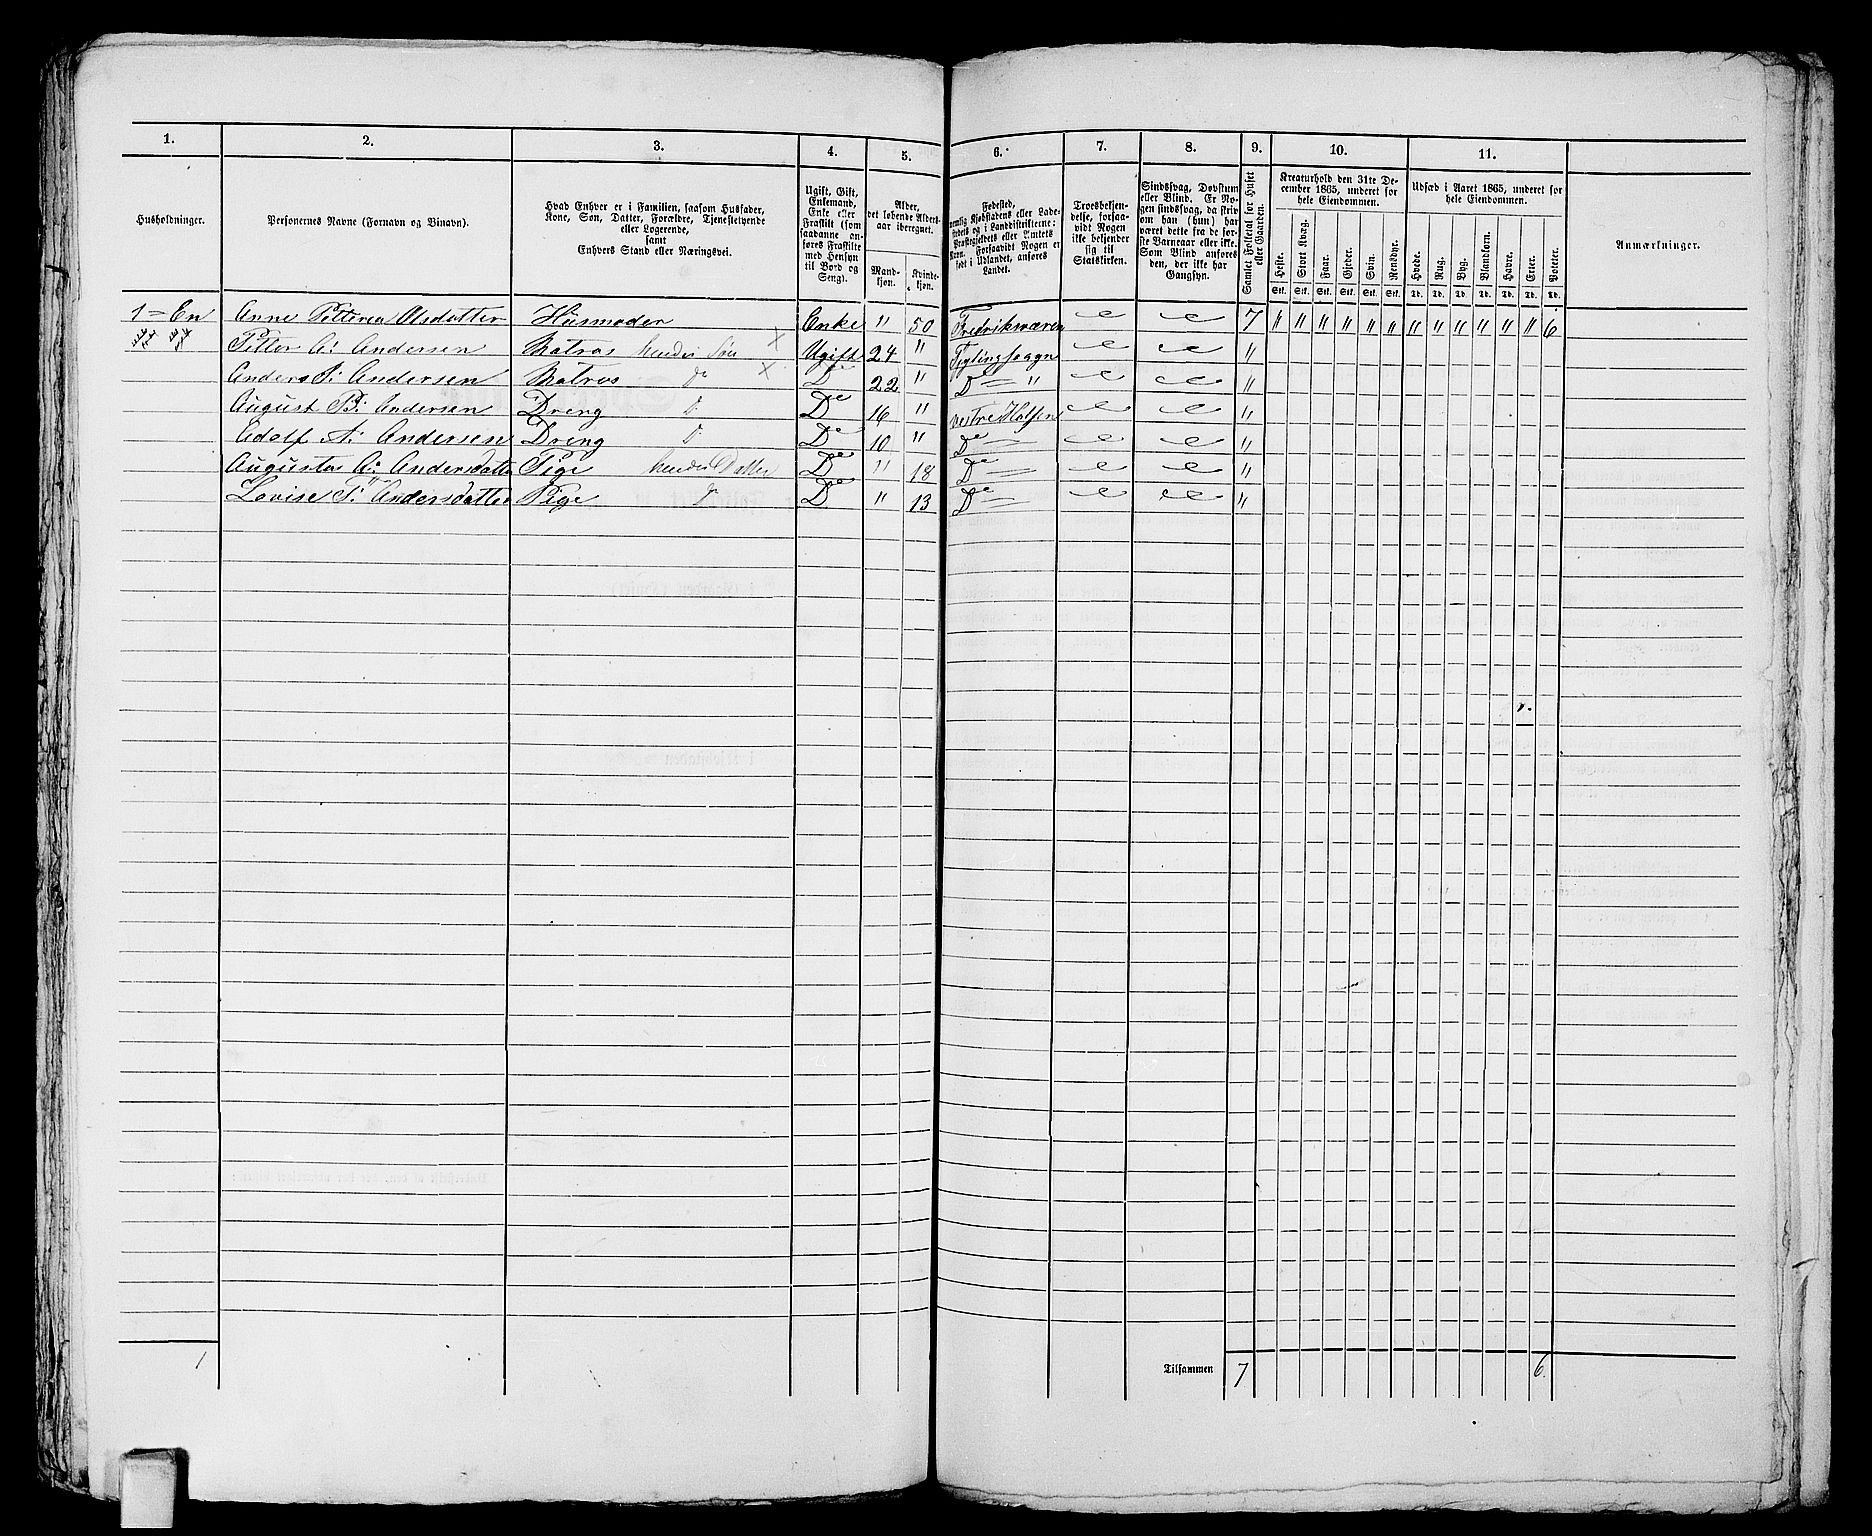 1. 2. 3. 4. 5. 6. 7. 8. 9. 10. 11.
Husholdninger.
Personernes Navne (Fornavn og Binavn).
Hvad Enhver er i Familien, saasom Husfader,
Kone, Søn, Datter, Forældre, Tjenestetyende
eller Logerende,
samt
Enhvers Stand eller Næringsvei.
Ugift, Gift,
Enkemand,
Enke eller
Fraskilt (som
saadanne an-
føres Fraskilte
med Hensyn
til Bord og
Seng).
Alder,
det løbende Alders-
aar iberegnet.
Mand-
kjøn.
Kvinde-
kjøn.
Fødested,
nemlig Kjøbstadens eller Lade-
stedets og i Landdistrikterne:
Præstegjeldets eller Amtets
Navn. Forsaavidt Nogen er
født i Udlandet, anføres
Landet.
Troesbekjen-
delse, forsaa-
vidt Nogen
ikke bekjender
sig til
Statskirken.
Sindssvag, Døvstum
eller Blind. Er No-
gen sindssvag, da skriv
om han (hun) har
været dette fra de før-
ste Barneaar eller ikke.
Som Blind anføres
den, der ikke har
Gangsyn.
Samlet Folketal for Huset
eller Gaarden.
Kreaturhold den 31te De-
cember 1865, underet for
hele Eiendommen.
Heste. Stort Kvæg. Faar. Gjeder. Svin. Rensdyr.
Stk. Stk. Stk. Stk. Stk. Stk.
Udsæd i Aaret 1865, underet for
hele Eiendommen.
Hvede. Rug. Byg. Blandkorn. Havre. Erter. Poteter.
Td. Td. Td. Td. Td. Td. Td.
Anmærkninger.
1 = En Anne Petterea Olsdatter Husmoder Enke " 50 Fredriksværen 7 " " " " " " " " " " " " 6
Petter A: Andersen Matros hendes Søn x Ugift 24 " Tjølingsogn "
Anders S: Andersen Matros do x De 22 " De = " "
August B: Andersen Dreng D De 16 " vestre Halsen "
Adolf A: Andersen Dreng D De 10 " De "
Augusta A: Andersdatter Pige hendes Datter De " 18 De "
Lovise P: Andersdatter Pige D De " 13 De "
1 Tilsammen 7 6.